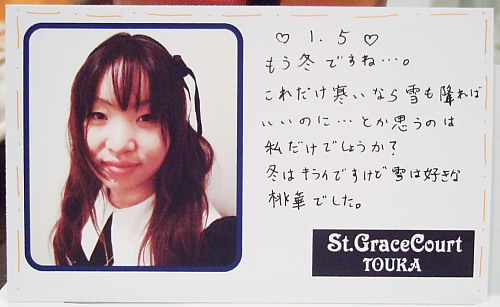 ♡ 1.5 ♡
もう冬ですね…。
これだけ寒いなら雪も降れば
いいのに…とか思うのは
私だけでしょうか?
冬はキライですけど雪は好きな
桃華でした。
St.GraceCourt
TOUKA